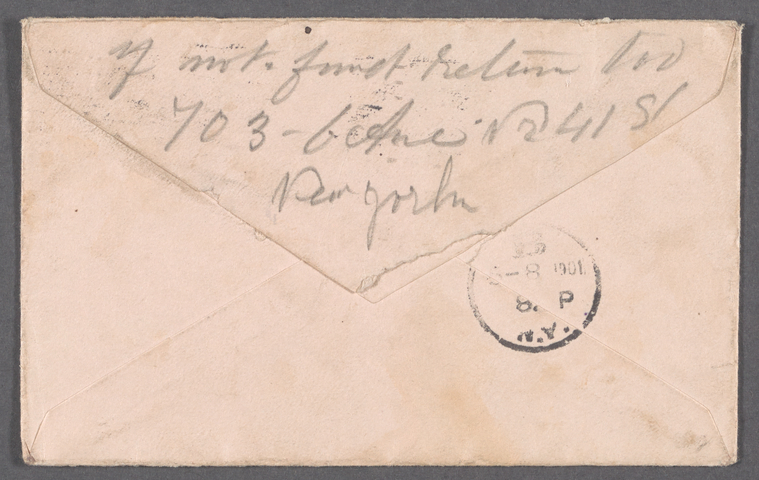 If not. found return too
703-6 Ave NR 41 St
New york
8 1901
8. P
N.Y.